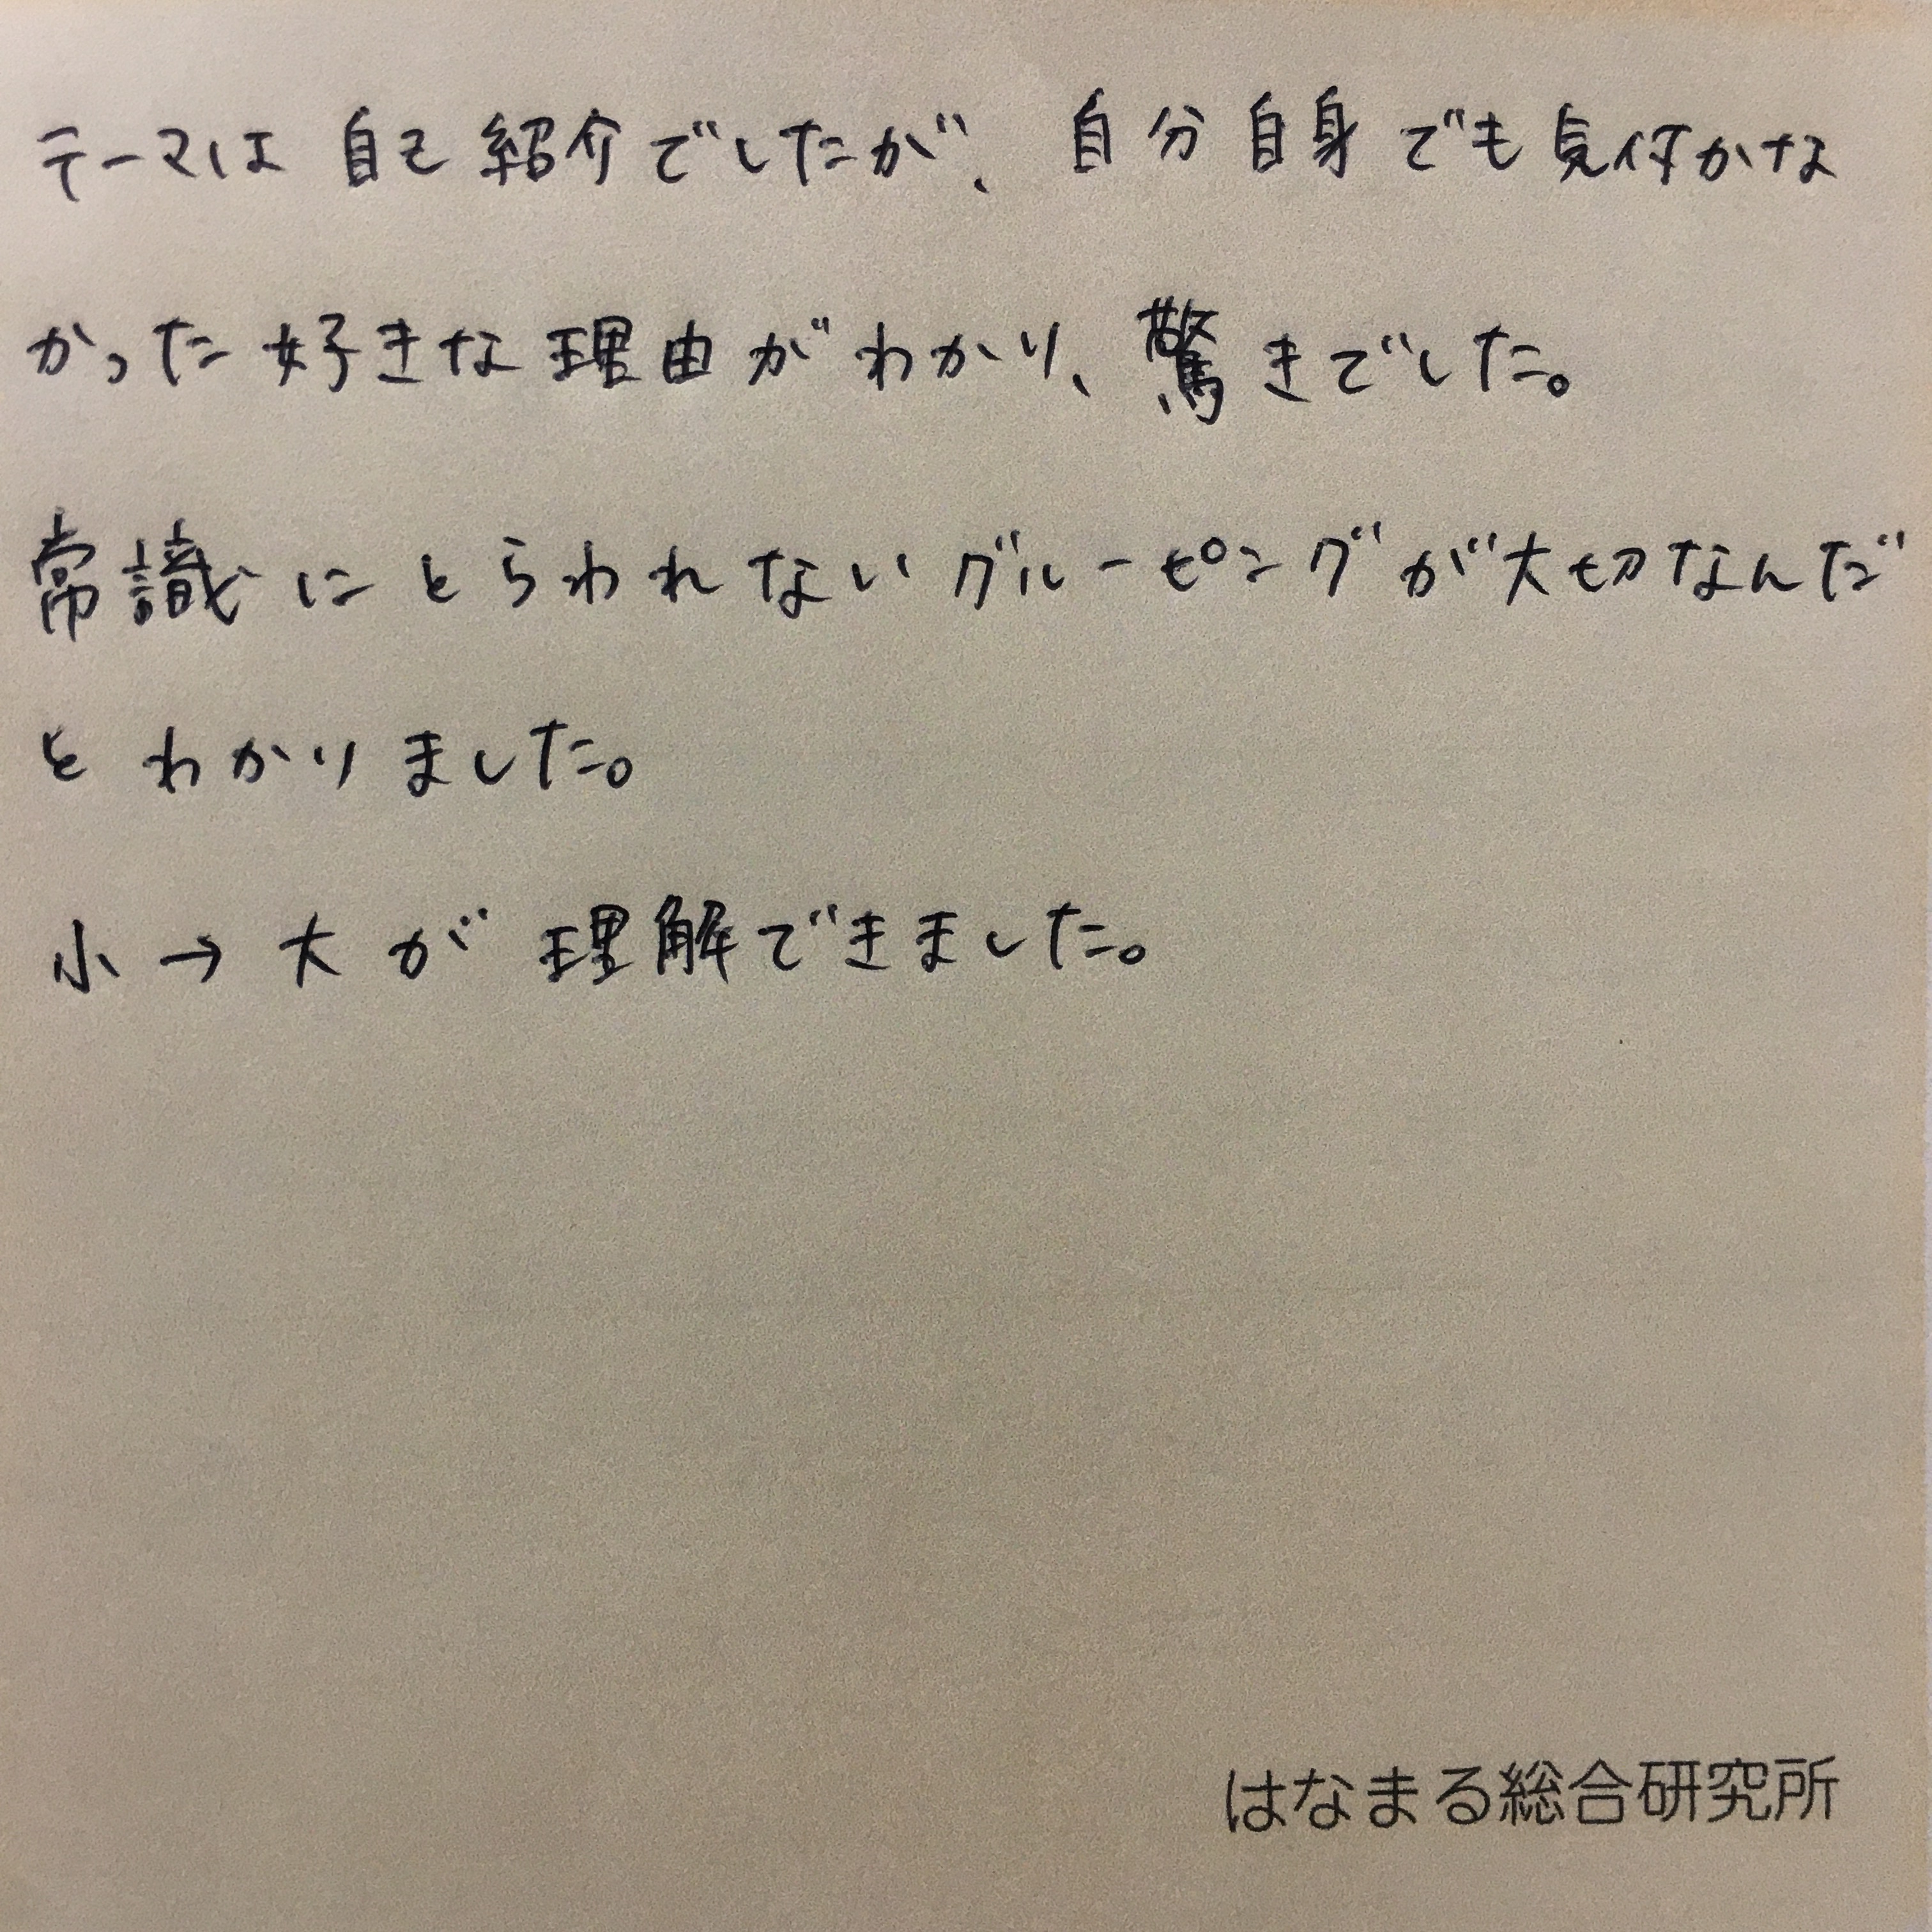 テーマは自己紹介でしたが、自分自身でも気付かな
かった好きな理由がわかり、驚きでした。
常識にとらわれないグルーピングが大切なんだ
とわかりました。
小→大が理解できました。
はなまる総合研究所